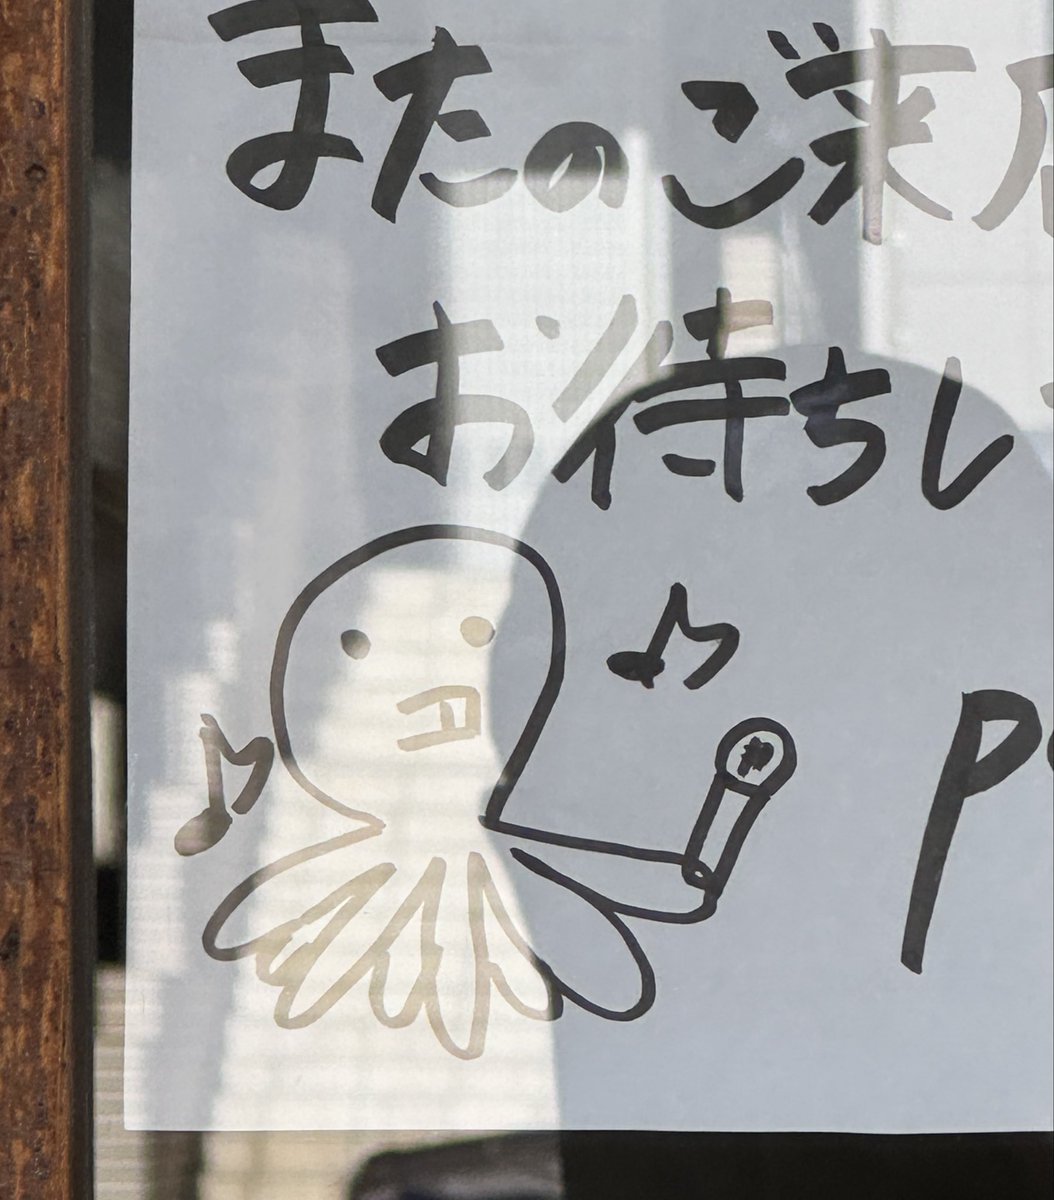 またのご来店
お待ちし
p